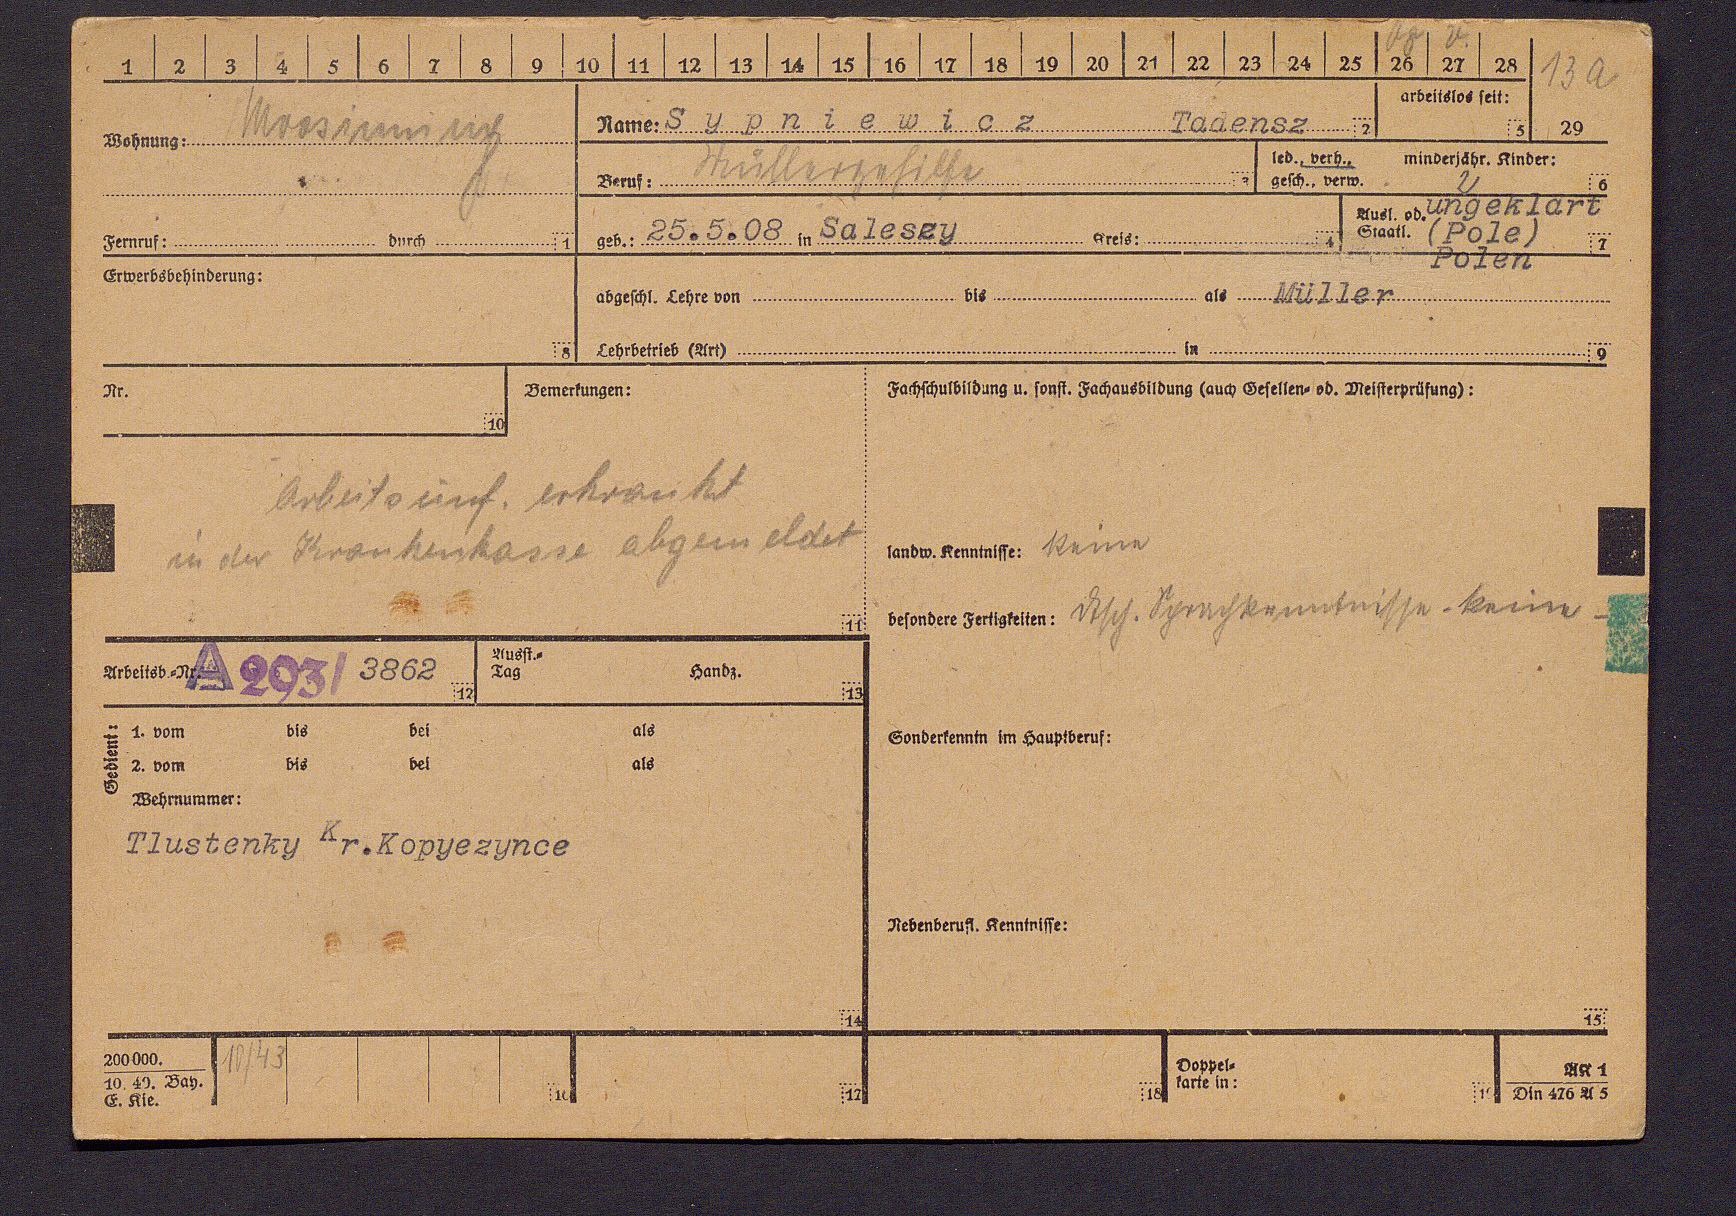 1 2 3 4 5 6 7 8 9 10 11 12 13 14 15 16 17 18 19 20 21 22 23 24 25 26 27 28 13a
Wohnung: Moosinning
Name: Sypniewicz Tadensz 2
arbeitslos seit: 5 29
Beruf: Müllergehilfe 3
led., verh.,
gesch., verw.
minderjähr. Kinder:
2 6
Fernruf: durch 1
geb.: 25.5.08 in Saleszy Kreis: 4
Ausl. od. ungeklärt
Staatl. (Pole) 7
Polen
Erwerbsbehinderung:
8
abgeschl. Lehre von bis als Müller
Lehrbetrieb (Art) in 9
Nr.
10
Bemerkungen:
Arbeitsunf. erkrankt
in der Krankenkasse abgemeldet
11
Fachschulbildung u. sonst. Fachausbildung (auch Gesellen- od. Meisterprüfung):
landw. Kenntnisse: keine
besondere Fertigkeiten: dtsch. Sprachkenntnisse - keine -
Arbeitsb.-Nr. A 293/ 3862 12
Ausst.-
Tag Handz. 13
Gedient:
1. vom bis bei als
2. vom bis bei als
Wehrnummer:
Tlustenky Kr.Kopyezynce
14
Sonderkenntn im Hauptberuf:
Nebenberufl. Kenntnisse:
15
200000.
10. 40. Bay.
E. Kie.
10/43
16 17 18
Doppel-
karte in: 19
AK 1
Din 476 A 5